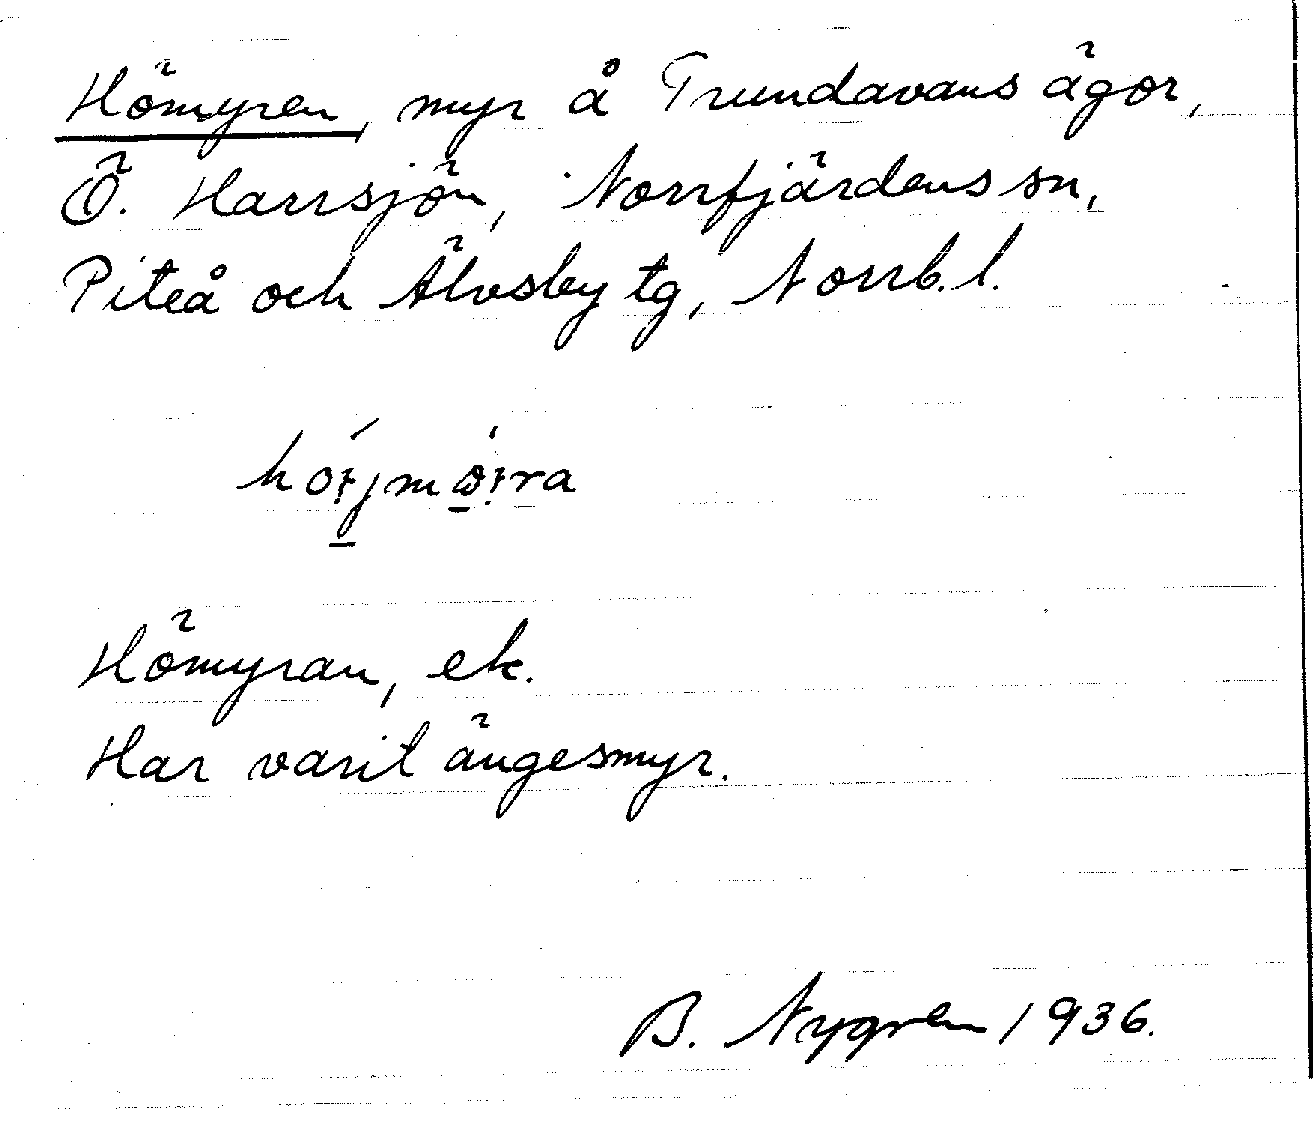 Hömyren, myr å Trundavans ägor,
Ö. Harrsjön, Norrfjärdens sn,
Piteå och Älvsby tg, Norrb. l.
Hömyran, ek.
Har varit ängesmyr.
B. Nygren 1936.